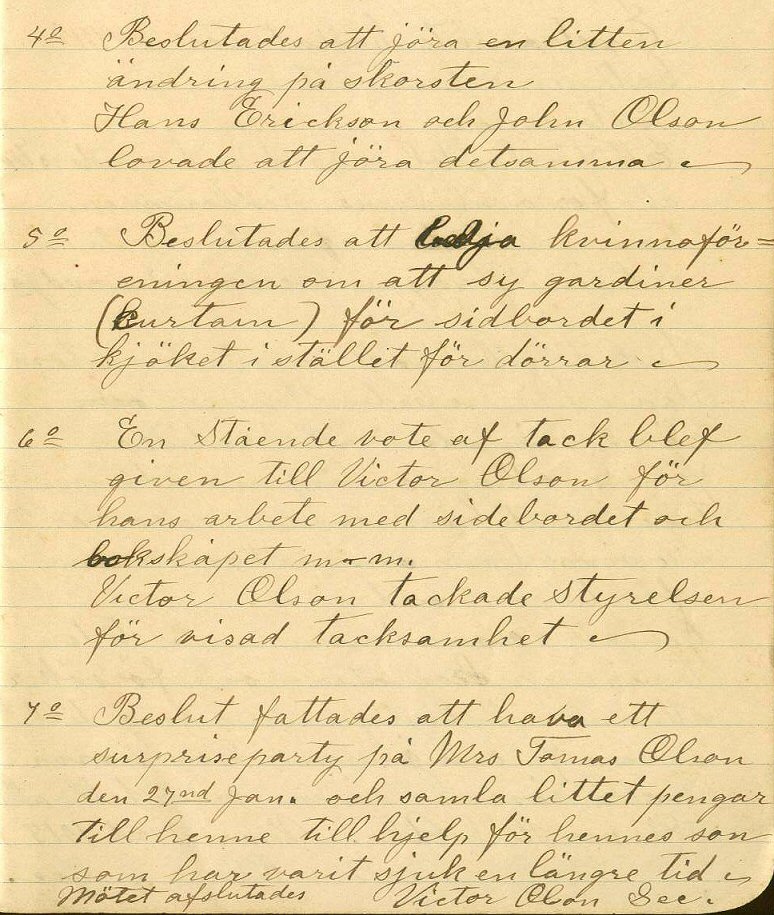 4º Beslutades att jöra en litten
ändring på skorsten
Hans Erickson och John Olson
lovade att jöra detsamma
5º Beslutades att bedja kvinnoför=
eningen om att sy gardiner
(curtain) för sidbordet i
kjöket i stället för dörrar
6º En stående vote af tack blef
given till Victor Olson för
hans arbete med sidebordet och
bokskåpet m-m.
Victor Olson tackade styrelsen
för visad tacksamhet
7º Beslut fattades att hava ett
surpriseparty på Mrs Tomas Olson
den 27nd Jan. och samla littet pengar
till henne till hjelp för hennes son
som har varit sjuk en längre tid
Mötet afslutades Victor Olson Sec.